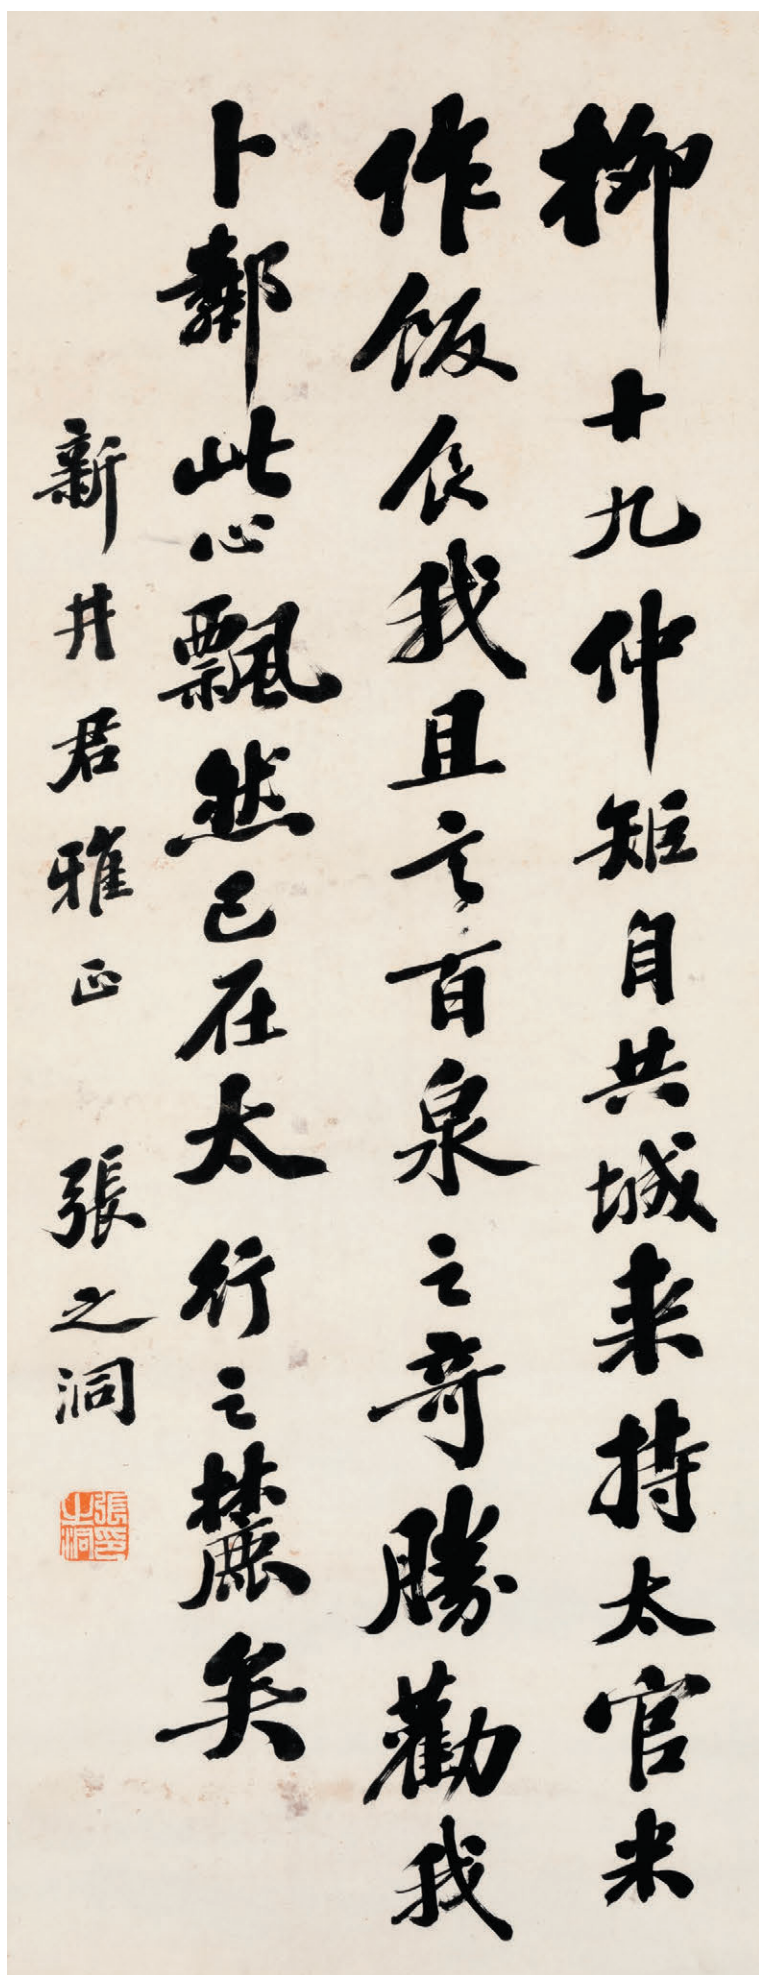 柳十九仲矩自共城来持太官米
作飯食我且言百泉之奇勝勸我
卜鄰此心飄然已在太行之麓矣
新井君雅正 張之洞
張之洞印